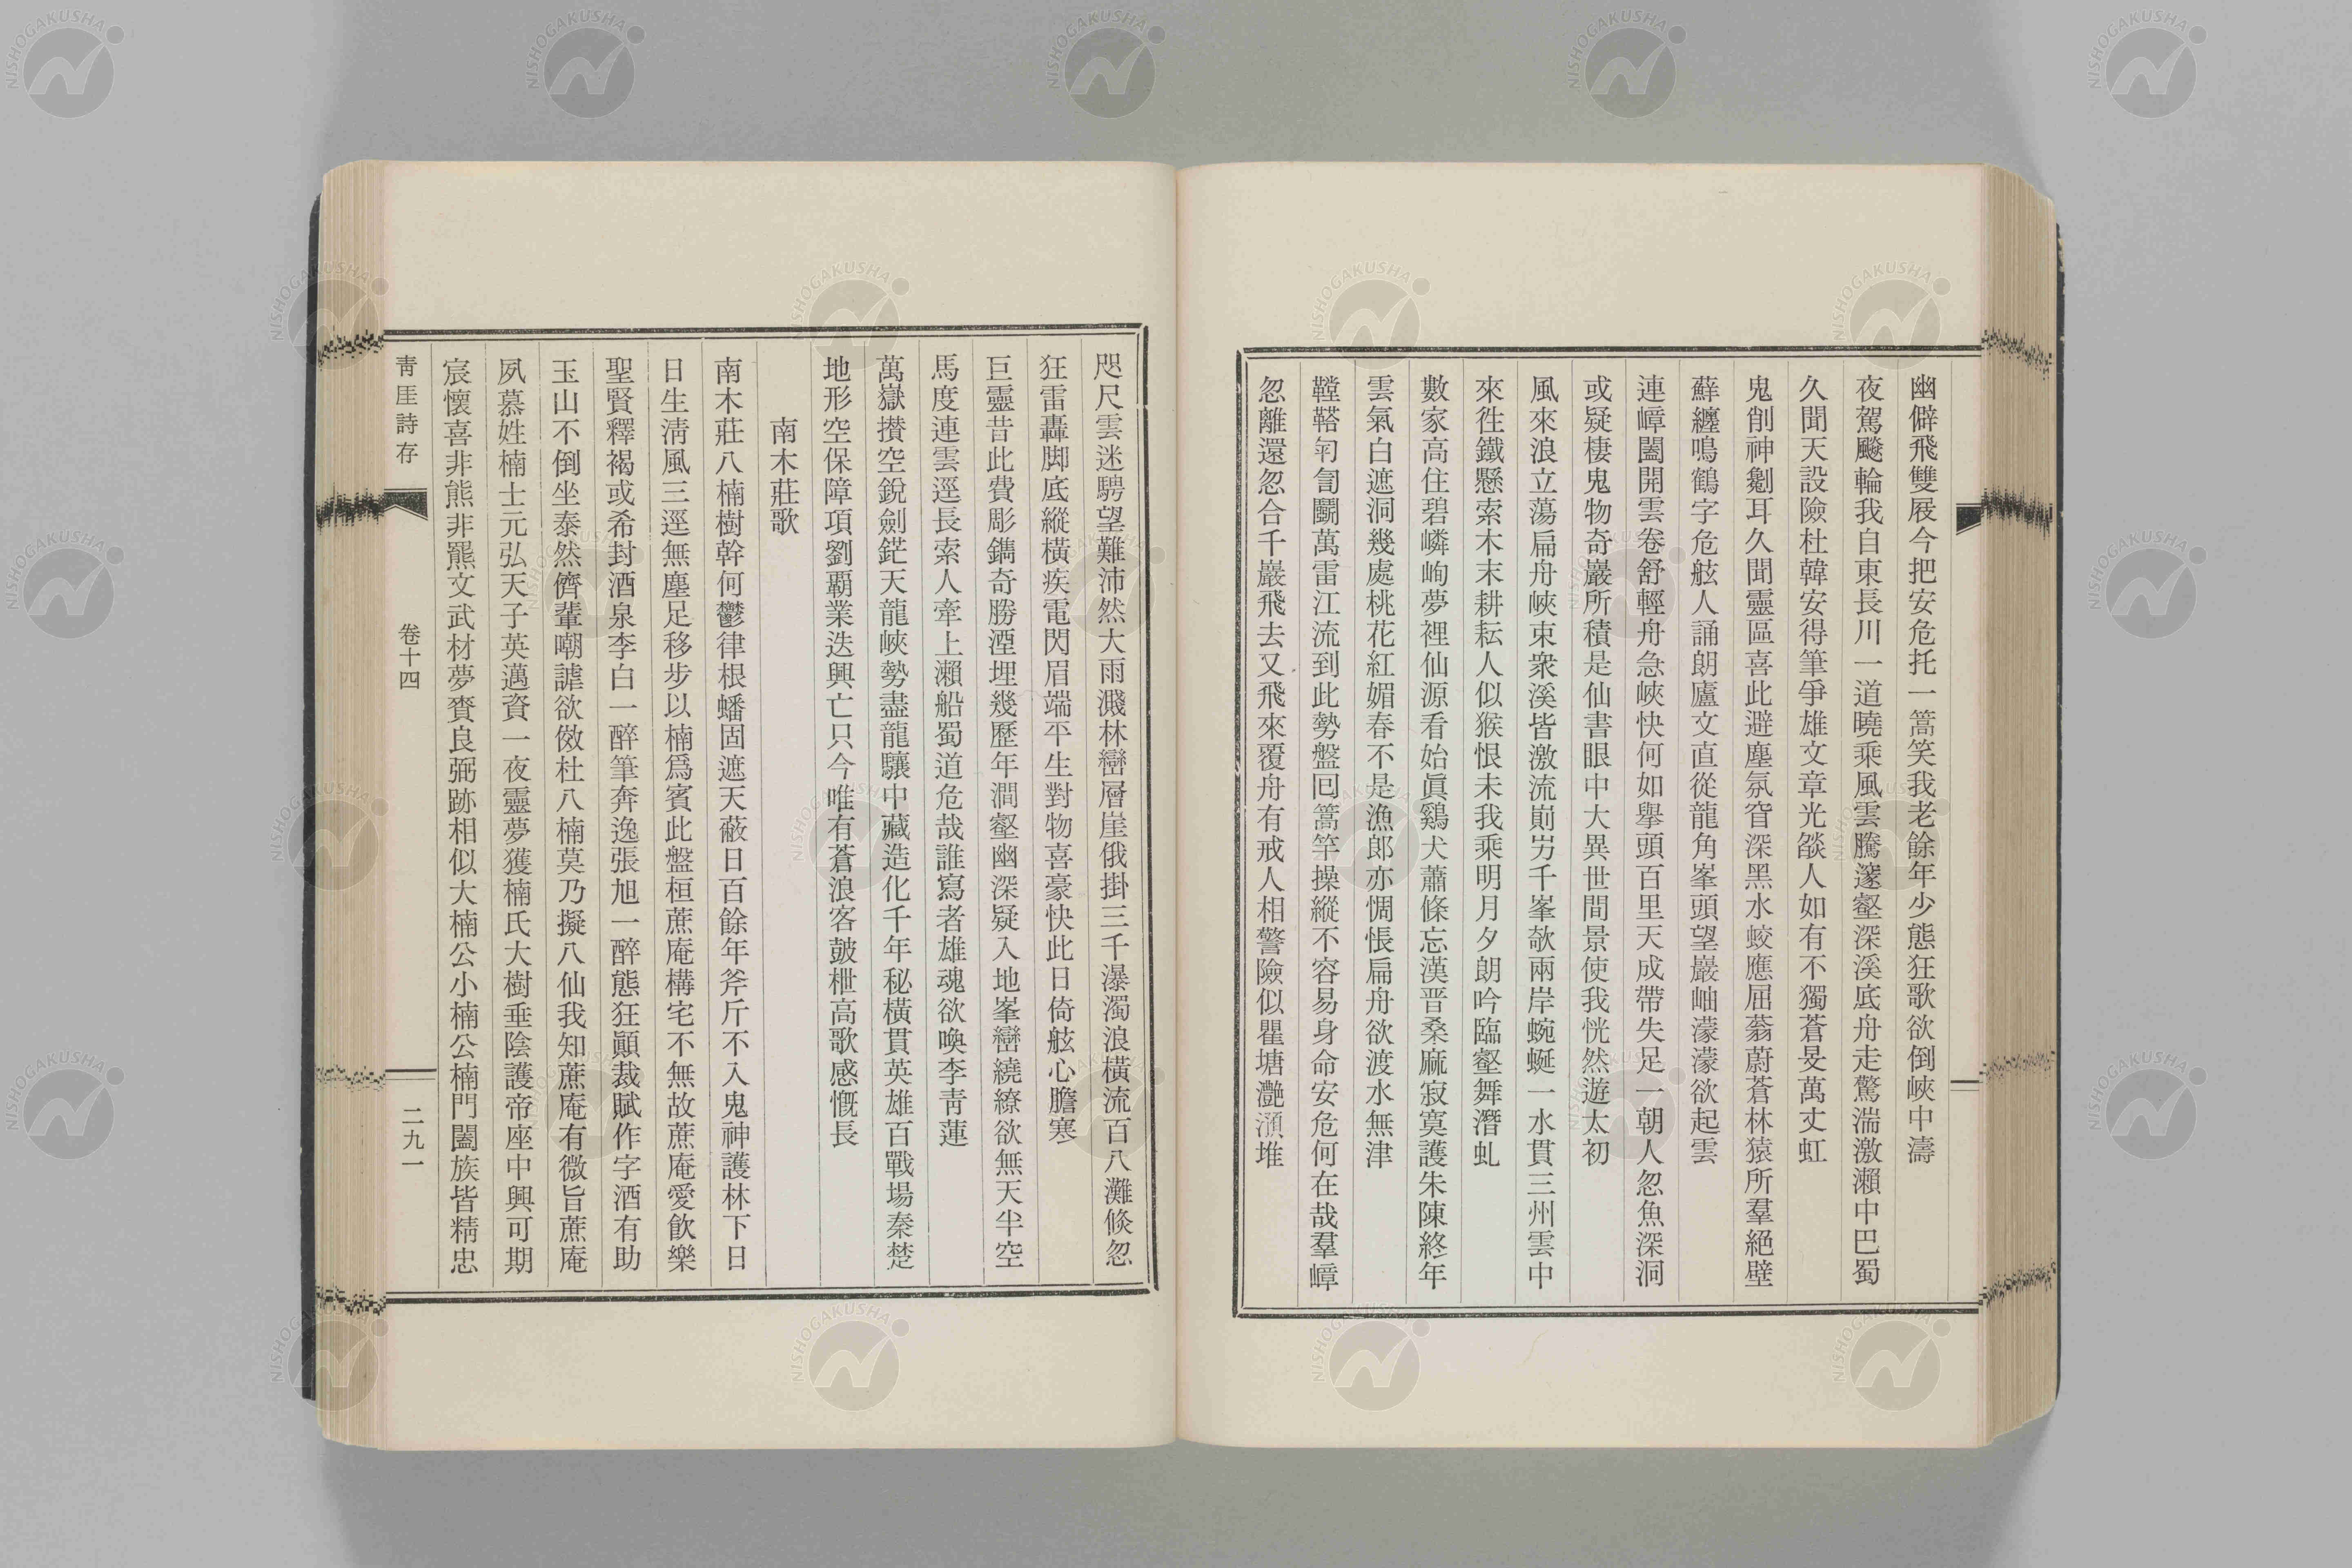 幽僻飛雙屐今把安危托一篙笑我老餘年少態狂歌欲倒峽中濤
夜駕颷輪我自東長川一道曉乘風雲騰邃壑深溪底舟走驚湍激瀨中巴蜀
久聞天設險杜韓安得筆爭雄文章光燄人如有不獨蒼旻萬丈虹
鬼削神剜耳久聞靈區喜此避塵氛窅深黑水蛟應屈蓊蔚蒼林猿所羣絕壁
蘚纏鳴鶴字危舷人誦朗廬文直從龍角峯頭望巖岫濛濛欲起雲
連嶂闔開雲卷舒輕舟急峽快何如擧頭百里天成帶失足一朝人忽魚深洞
或疑棲鬼物奇巖所積是仙書眼中大異世間景使我恍然遊太初
風來浪立蕩扁舟峽束衆溪皆激流崱屴千峯欹兩岸蜿蜒一水貫三州雲中
來徃鐵懸索木末耕耘人似猴恨未我乘明月夕朗吟臨壑舞潛虬
數家高住碧嶙峋夢裡仙源看始眞鷄犬蕭條忘漢晋桑麻寂寞護朱陳終年
雲氣白遮洞幾處桃花紅媚春不是漁郎亦惆悵扁舟欲渡水無津
鞺鞳訇訇鬭萬雷江流到此勢盤回篙竿操縱不容易身命安危何在哉羣嶂
忽離還忽合千巖飛去又飛來覆舟有戒人相警險似瞿塘灔澦堆
咫尺雲迷騁望難沛然大雨濺林巒層崖俄掛三千瀑濁浪橫流百八灘倏忽
狂雷轟脚底縱橫疾電閃眉端平生對物喜豪快此日倚舷心膽寒
巨靈昔此費彫鐫奇勝湮埋幾歷年澗壑幽深疑入地峯巒繞繚欲無天半空
馬度連雲逕長索人牽上瀨船蜀道危哉誰寫者雄魂欲喚李靑蓮
萬嶽攅空銳劍鋩天龍峽勢盡龍驤中藏造化千年秘橫貫英雄百戰場秦楚
地形空保障項劉覇業迭興亡只今唯有蒼浪客皷枻高歌感慨長
南木莊歌
南木莊八楠樹幹何鬱律根蟠固遮天蔽日百餘年斧斤不入鬼神護林下日
日生淸風三逕無塵足移步以楠爲賓此盤桓蔗庵構宅不無故蔗庵愛飮樂
聖賢釋褐或希封酒泉李白一醉筆奔逸張旭一醉態狂顚裁賦作字酒有助
玉山不倒坐泰然儕輩嘲謔欲傚杜八楠莫乃擬八仙我知蔗庵有微旨蔗庵
夙慕姓楠士元弘天子英邁資一夜靈夢獲楠氏大樹垂陰護帝座中興可期
宸懷喜非熊非羆文武材夢賚良弼跡相似大楠公小楠公楠門闔族皆精忠
靑厓詩存
卷十四
二九一